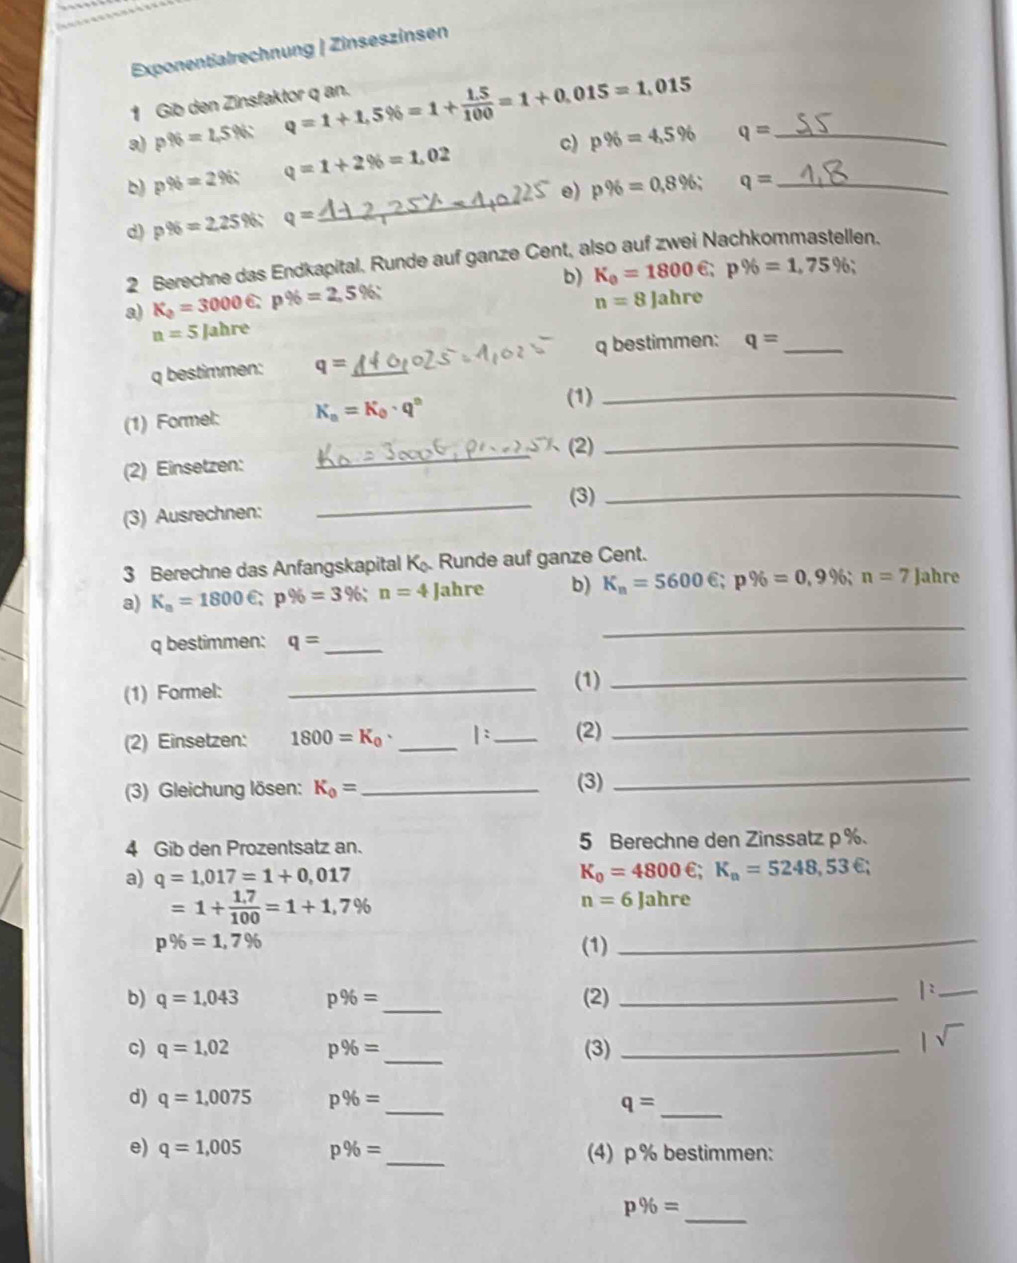 Exponentialrechnung | Zinseszinsen
1 Gib den Zinsfaktor q an.
a) p% = 1,5%; q = 1 + 1,5% = 1 + 1,5/100 = 1 + 0,015 = 1,015
b) p% = 2%; q = 1 + 2% = 1,02
c) p% = 4,5% q = 5,5
d) p% = 2,25%; q = 1+2,25% = 1,0225
e) p% = 0,8%; q = 1,8
2 Berechne das Endkapital. Runde auf ganze Cent, also auf zwei Nachkommastellen.
a) K₀ = 3000 €; p% = 2,5%;
n = 5 Jahre
b) K₀ = 1800 €; p% = 1,75%;
n = 8 Jahre
q bestimmen: q = 1+0,025 = 1,025
q bestimmen: q = ____
(1) Formel: Kₙ = K₀ · qⁿ
(1) ____
(2) Einsetzen: K₀ = 3000€; p
(2) ____
(3) Ausrechnen: ____
(3) ____
3 Berechne das Anfangskapital K₀. Runde auf ganze Cent.
a) Kₙ = 1800 €; p% = 3%; n = 4 Jahre
b) Kₙ = 5600 €; p% = 0,9%; n = 7 Jahre
q bestimmen: q = ____
(1) Formel: ____
(1) ____
(2) Einsetzen: 1800 = K₀ · ____ |: ____
(2) ____
(3) Gleichung lösen: K₀ = ____
(3) ____
4 Gib den Prozentsatz an.
a) q = 1,017 = 1 + 0,017
= 1 + 1,7/100 = 1 + 1,7%
p% = 1,7%
b) q = 1,043 p% = ____
c) q = 1,02 p% = ____
d) q = 1,0075 p% = ____
e) q = 1,005 p% = ____
5 Berechne den Zinssatz p%.
K₀ = 4800 €; Kₙ = 5248,53 €;
n = 6 Jahre
(1) ____
(2) ____ |: ____
(3) ____ | √
q = ____
(4) p% bestimmen:
p% = ____